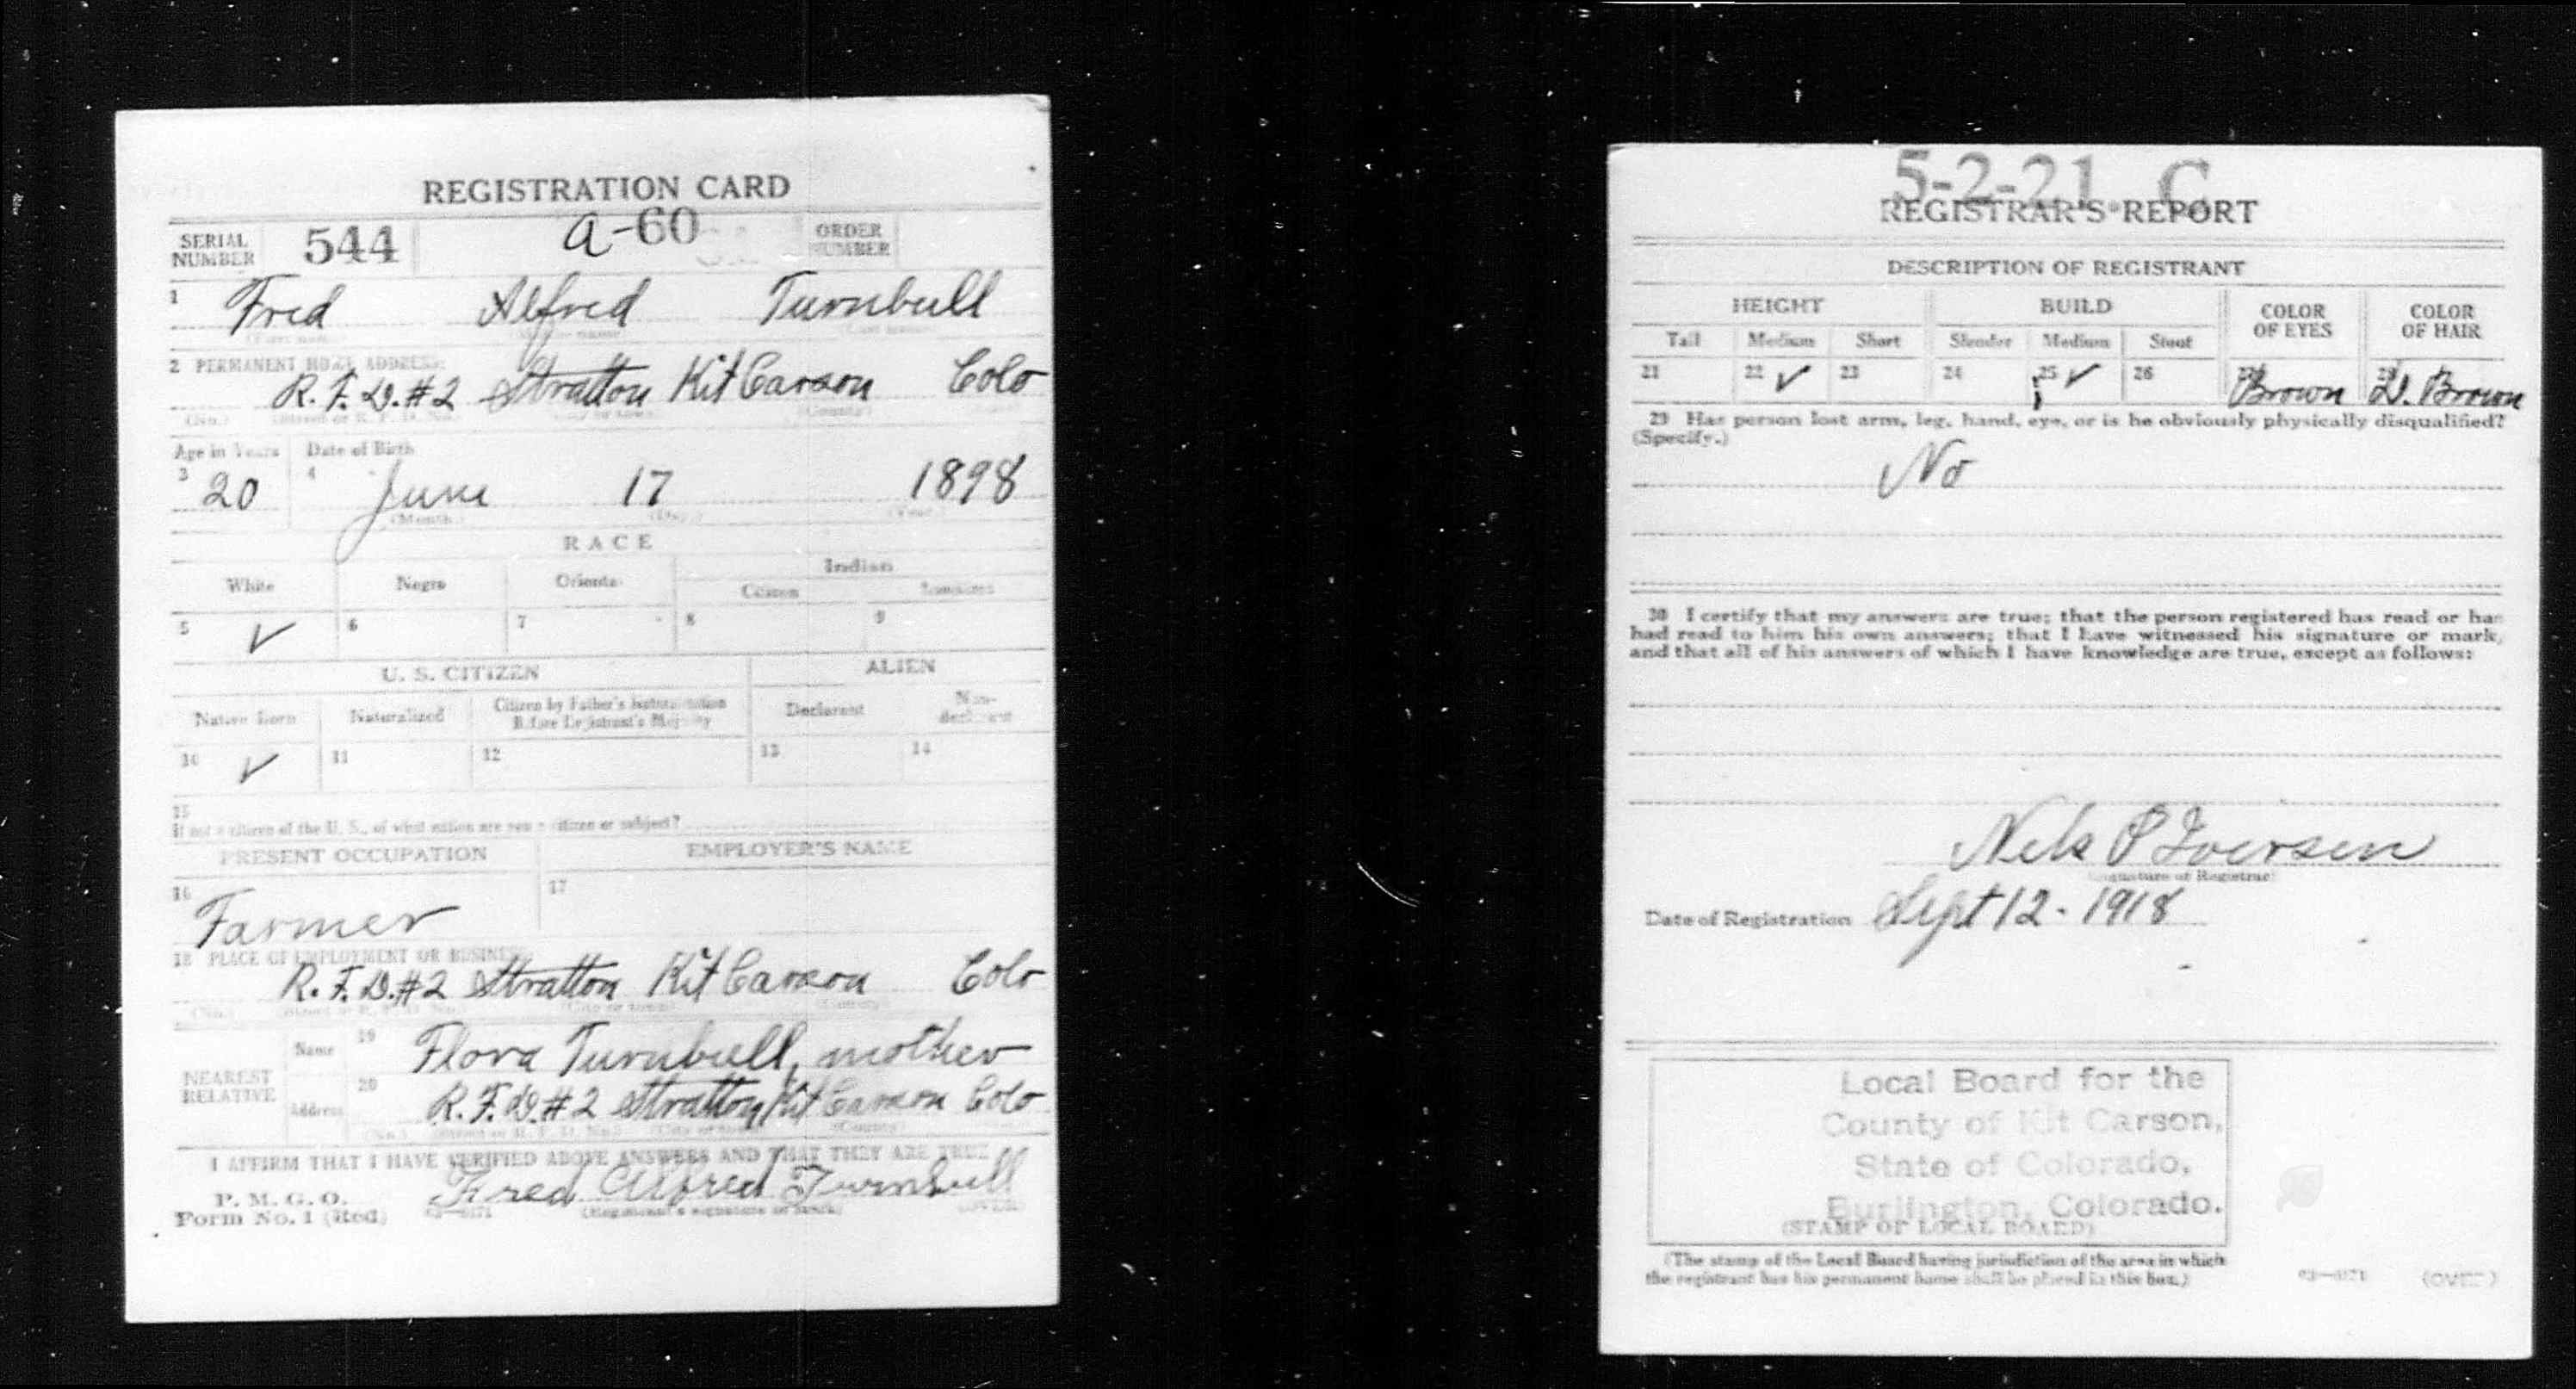 REGISTRATION CARD
SERIAL NUMBER 544 a-60 ORDER NUMBER
1 Fred Alfred Turnbull
2 PERMANENT HOME ADDRESS:
R. F. D. #2 Stratton Kit Carson Colo
(No.) (Street or R. F. D. No.) (City or town) (County)
Age in Years Date of Birth
3 20 4 June 17 1898
(Month.) (Day.) (Year.)
RACE
White Negro Oriental Indian
Citizen Noncitizen
5 ✓ 6 7 8 9
U. S. CITIZEN ALIEN
Native Born Naturalized Citizen by Father's Naturalization Before Registrant's Majority Declarant Non-declarant
10 ✓ 11 12 13 14
15
If not a citizen of the U. S., of what nation are you a citizen or subject?
PRESENT OCCUPATION EMPLOYER'S NAME
16 Farmer 17
18 PLACE OF EMPLOYMENT OR BUSINESS:
R. F. D. #2 Stratton Kit Carson Colo
(No.) (Street or R. F. D. No.) (City or town) (County)
NEAREST RELATIVE Name 19 Flora Turnbull, mother
Address 20 R. F. D. #2 Stratton Kit Carson Colo
(No.) (Street or R. F. D. No.) (City or town) (County)
I AFFIRM THAT I HAVE VERIFIED ABOVE ANSWERS AND THAT THEY ARE TRUE
P. M. G. O.
Form No. 1 (Red) Fred Alfred Turnbull
(Registrant's signature or mark) (OVER)
5-2-21. C
REGISTRAR'S REPORT
DESCRIPTION OF REGISTRANT
HEIGHT BUILD COLOR OF EYES COLOR OF HAIR
Tall Medium Short Slender Medium Stout
21 22 ✓ 23 24 25 ✓ 26 27 Brown 28 D. Brown
29 Has person lost arm, leg, hand, eye, or is he obviously physically disqualified?
(Specify.)
No
30 I certify that my answers are true; that the person registered has read or has
had read to him his own answers; that I have witnessed his signature or mark,
and that all of his answers of which I have knowledge are true, except as follows:
Nels P Iversen
(Signature of Registrar)
Date of Registration Sept 12 - 1918
Local Board for the
County of Kit Carson,
State of Colorado,
Burlington, Colorado.
(STAMP OF LOCAL BOARD)
(The stamp of the Local Board having jurisdiction of the area in which
the registrant has his permanent home shall be placed in this box.)
03—6171 (OVER)